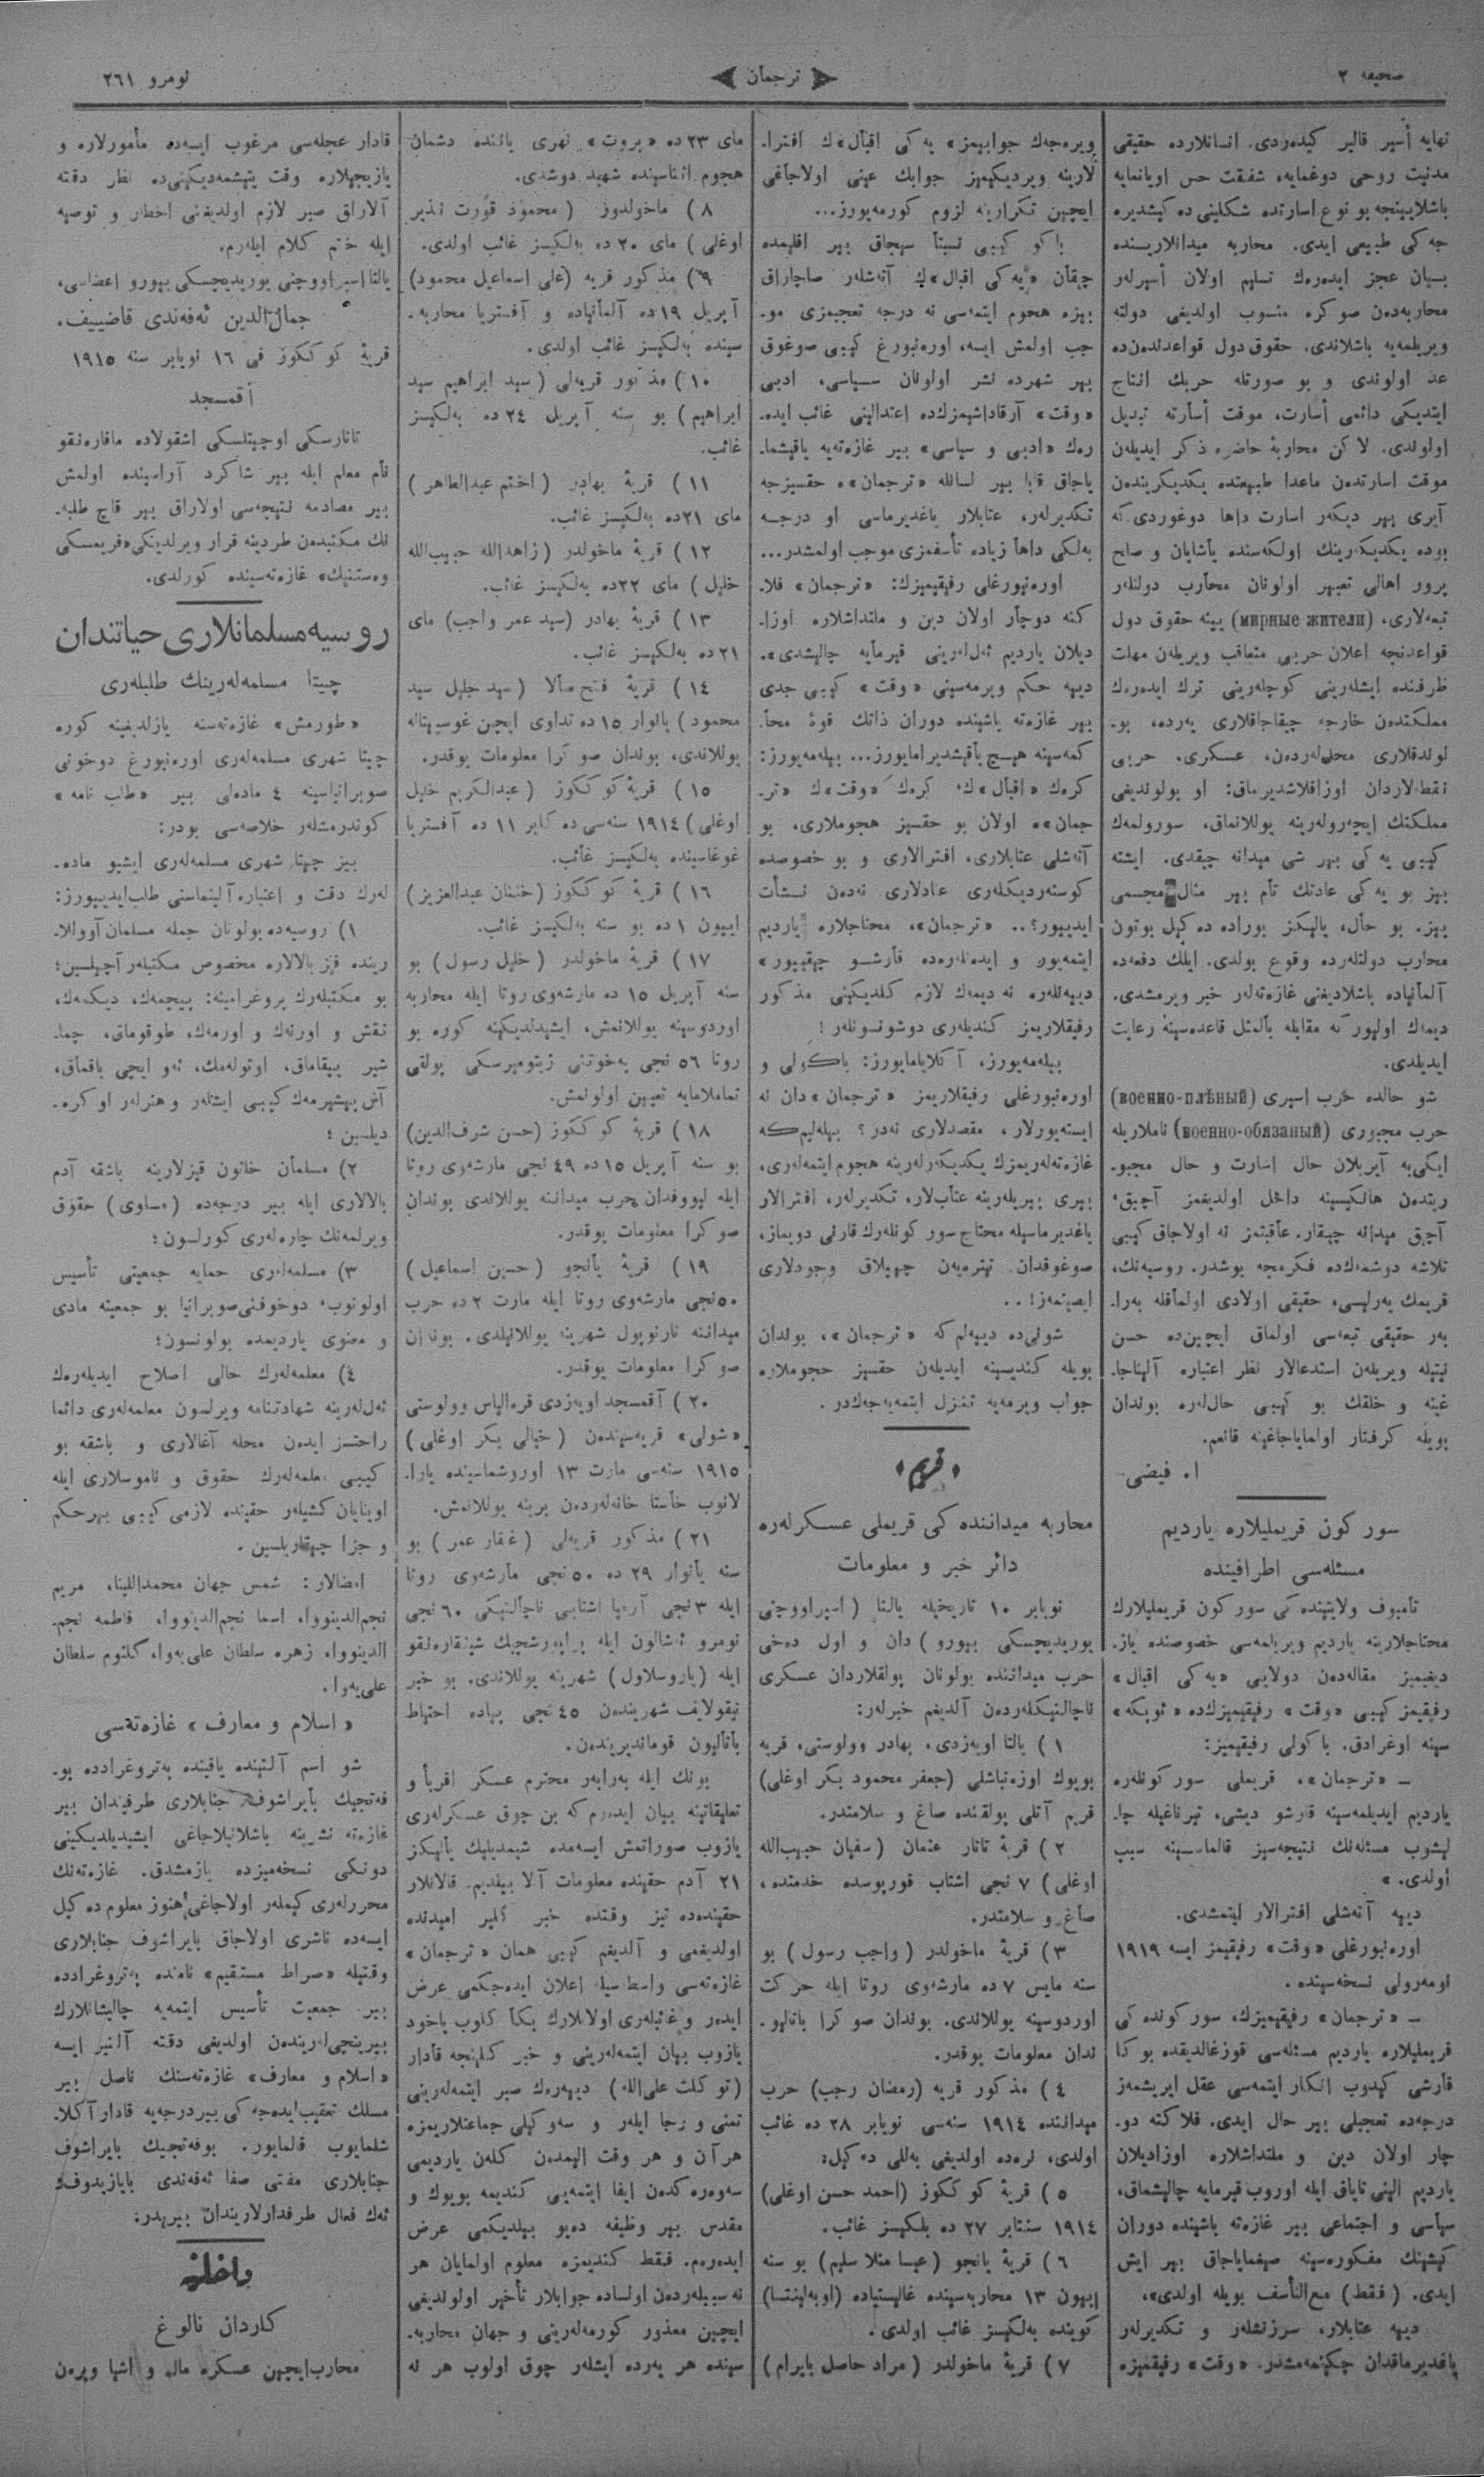 صحیفه ٢
ترجمان
نومرو ٢٦١
نهایه أسیر قالیر كیده‌ردی. انسانلارده حقیقی
مدنیت روحی دوغمایه، شفقت حس اویانمایه
باشلایینجه بو نوع اسارتده شكلینی ده كیشدیره
جه كی طبیعی ایدی. محاربه میدانلاریسنده
بسیان عجز ایده‌رك تسلیم اولان أسیرلەر
محاربه‌دن صوكره منسوب اولدیغی دولته
ویریلمه‌یه باشلاندی. حقوق دول قواعدندن‌ده
عد اولوندی و بو صورتله حربك انتاج
ایتدیكی دائمی أسارت، موقت أسارته تبدیل
اولولدی. لاكن محاربهٔ حاضره ذكر ایدیله‌ن
موقت اسارتدن ماعدا طبیعتده یكدیكریندن
آیری بیر دیكه‌ر اسارت داها دوغوردی كه
بوده یكدیكه‌رینك اولكه‌سنده یأشایان و صلح
پرور اهالی تعبیر اولونان محأرب دولتلەر
تبعه‌لاری، (мирные жители) یینه حقوق دول
قواعدنجه اعلان حربی متعاقب ویریله‌ن مهلت
ظرفنده ایشله‌رینی كوچله‌رینی ترك ایده‌رك
مملكتدن خارجه چیقاجاقلاری یه‌رده، بو‌
لولدقلاری محل‌له‌ردن، عسكری، حربی
نقطه‌لاردان اوزاقلاشدیرماق: او بولولدیغی
مملكتك ایچه‌رولەرینه یوللانماق، سورولمه‌ك
كیبی یه كی بیر شی میدانه چیقدی. ایشته
بیز بو یه كی عادتك تأم بیر مثال مجسمی
ییز. بو حأل، یالیكز بوراده ده كیل بوتون
محارب دولتلەرده وقوع بولدی. ایلك دفعه‌ده
آلمانیاده باشلادیغی غازه‌ته‌لەر خبر ویرمشدی.
دیمه‌ك اولیور كه مقابله بألمثل قاعده‌سینه رعایت
ایدیلدی.
شو حالده حرب اسیری (военно-плѣный)
حرب مجبوری (военно-обязаный) ناملاریله
ایكی‌یه آیریلان حال اسارت و حال مجبو‌
ریتدن هانكیسینه داخل اولدیغمز آچیق،
آچیق میدانه چیقار. عأقبتمز نه اولاجاق كیبی
تلاشه دوشمه‌ك‌ده فكرمجه بوشدر. روسیه‌نك،
قریمك یه‌رلیسی، حقیقی اولادی اولماقله به‌را‌
به‌ر حقیقی تبعه‌سی اولماق ایچین‌ده حسن
نیتیله ویریله‌ن استدعالار نظر اعتباره آلیناجا‌
غینه و خلقك بو كیبی حال‌لەره بوندان
بویله كرفتار اولمایاجاغینه قانعم.
ا. فیضی
سور كون قریملیلاره یاردیم
مسئله‌سی اطرافینده
تأمبوف ولایتینده كی سور كون قریملیلارك
محتاجلارینه یاردیم ویریلمه‌سی خصوصنده یاز‌
دیغیمیز مقاله‌دن دولایی «یه كی اقبال»
رفیقیمز كیبی «وقت» رفیقیمیزك‌ده «ئویكه»
سینه اوغرادق. باكولی رفیقیمیز:
ـ «ترجمان»، قریملی سور كونلەره
یاردیم ایدیلمه‌سینه قارشو دیشی، تیرناغیله چا‌
لیشوب مسئله‌نك نتیجه‌سیز قالماسینه سبب
أولدی.»
دییه آته‌شلی افترالار ایتمشدی.
اوره‌نبورغلی «وقت» رفیقیمز ایسه ١٩١٩
نومه‌رولی نسخه‌سینده.
ـ «ترجمان» رفیقیمیزك، سور كونده كی
قریملیلاره یاردیم مسئله‌سی قوزغالدیقده بوكا
قأرشی كیدوب انكار ایتمه‌سی عقل ایریشمه‌ز
درجه‌ده تعجبلی بیر حال ایدی. فلاكته دو‌
چار اولان دین و ملتداشلاره اوزادیلان
یاردیم الینی تایاق ایله اوروب قیرمایه چالیشماق،
سیأسی و اجتماعی بیر غازه‌ته باشینده دوران
كیشینك مفكوره‌سینه صیغمایاجاق بیر ایش
ایدی. (فقط) مع‌التأسف بویله اولدی».
دییه عتابلار، سرزنشلەر و تكدیرلەر
یاغدیرماقدان چكینمه‌مشدر. «وقت» رفیقمیزه
ویره‌جه‌ك جوابیمز» یه كی اقبال»ك افترا‌
لارینه ویردیكیمیز جوابك عینی اولاجاغی
ایچین تكرارینه لزوم كورمه‌یورز...
باكو كیبی نسبتاً سیجاق بیر اقلیمده
چیقأن «یه كی اقبال»ك آته‌شلەر صاچاراق
بیزه هجوم ایتمه‌سی نه درجه تعجبمزی مو‌
جب اولمش ایسه، اوره‌نبورغ كیبی صوغوق
بیر شهرده نشر اولونان سیاسی، ادبی
«وقت» آرقاداشیمزك‌ده اعتدالینی غائب ایده‌
ره‌ك «ادبی و سیاسی» بیر غازه‌ته‌یه یاقیشما‌
یاجاق قابا بیر لسانله «ترجمان»ه حقسیزجه
تكدیرلەر، عتابلار یاغدیرماسی او درجه
به‌لكی داهأ زیاده تأسفمزی موجب اولمشدر...
اوره‌نبورغلی رفیقیمیزك: «ترجمان» فلا‌
كته دوچأر اولان دین و ملتداشلاره اوزا‌
دیلان یاردیم ئه‌للەرینی قیرمأیه چالیشدی».
دییه حكم ویرمه‌سینی «وقت» كیبی جدی
بیر غازه‌ته باشینده دوران ذاتك قوهٔ محا‌
كمه‌سینه هیچ یأقیشدیرامایورز... بیله‌مه‌یورز:
كره‌ك «اقبال»ك، كره‌ك «وقت»ك «تر‌
جمان»ه اولان بو حقسیز هجوملاری، بو
آته‌شلی عتابلاری، افترالاری و بو خصوصده
كوسته‌ردیكلەری عنادلاری نه‌دن نشأت
ایدییور؟.. «ترجمان»، محتاجلاره یاردیم
ایتمه‌یور و ایده‌نلەره‌ده قأرشو چیقییور»
دییه‌نلەره نه دیمه‌ك لازم كلدیكینی مذكور
رفیقلاریمز كندیلەری دوشونسونلەر!
بیله‌مه‌یورز، آكلایامایورز: باكولی و
اوره‌نبورغلی رفیقلاریمز «ترجمان»دان نه
ایسته‌یورلار، مقصدلاری نه‌در؟ بیله‌لیم‌كه
غازه‌ته‌لەریمزك یكدیكه‌رلەرینه هجوم ایتمه‌لەری،
بیری بیریلەرینه عتأب‌لار، تكدیرلەر، افترالار
یاغدیرماسیله محتاج سور كونلەرك قارنی دویماز،
صوغوقدان تیتره‌یه‌ن چیپلاق وجودلاری
ایصینمه‌ز!..
شونی‌ده دییه‌لم كه «ترجمان»، بوندان
بویله كندیسینه ایدیله‌ن حقسیز هجوملاره
جواب ویرمه‌یه تنزل ایتمه‌یه‌جه‌ك‌در.
«قریم»
محاربه میداننده كی قریملی عسكرلەره
دائر خبر و معلومات
نویابر ١٠ تاریخیله یالتا (اسیراووچنی
یوریدیچسكی بیورو) دان و اول ده‌خی
حرب میداننده بولونان پولقلاردان عسكری
ناچالنیكلەردن آلدیغم خبرلەر:
١) یالتا اویه‌زدی، بهادر وولوستی، قریه
بویوك اوزه‌نباشلی (جعفر محمود بكر اوغلی)
قریم آتلی پولقنده صاغ و سلامتدر.
٢) قریهٔ تاتار عثمان (سفیان حبیب‌الله
اوغلی) ٧ نجی اشتاب قورپوسده خدمتده،
صأغ و سلامتدر.
٣) قریهٔ ماخولدر (واجب رسول) بو
سنه مایس ٧ ده مارشه‌وی روتا ایله حركت
اوردوسینه یوللاندی. بوندان صوكرا باتالیو‌
ندان معلومات یوقدر.
٤) مذكور قریه (رمضان رجب) حرب
میداننده ١٩١٤ سنه‌سی نویابر ٢٨ ده غائب
اولدی، نره‌ده اولدیغی به‌للی ده كیل:
٥) قریهٔ كوككوز (احمد حسن اوغلی)
١٩١٤ سنتابر ٢٧ ده بلكیسز غائب.
٦) قریهٔ یانجو (عیسا منلا سلیم) بو سنه
اییون ١٣ محاربه‌سینده غالیستیاده (اوبه‌لینتسا)
كوینده به‌لكیسز غائب اولدی.
٧) قریهٔ ماخولدر (مراد حاصل بایرام)
مای ٢٣ ده «پروت» نهری یاننده دشمان
هجوم اثناسینده شهید دوشدی.
٨) ماخولدوز (محمود قورت نذیر
اوغلی) مای ٢٠ ده به‌لكیسز غائب اولدی.
٩) مذكور قریه (علی اسماعیل محمود)
آپریل ١٩ ده آلمأنیاده و آفستریا محاربه‌
سینده به‌لكیسز غائب اولدی.
١٠) مذكور قریه‌لی (سید ابراهیم سید
ابراهیم) بو سنه آپریل ٢٤ ده به‌لكیسز
غائب.
١١) قریهٔ بهادر (اختم عبدالطاهر)
مای ٢١ده به‌لكیسز غائب.
١٢) قریهٔ ماخولدر (زاهدالله حبیب‌الله
خلیل) مای ٢٢ده به‌لكیسز غائب.
١٣) قریهٔ بهادر (سید عمر واجب) مای
٢١ ده به‌لكیسز غائب.
١٤) قریهٔ فتح صألا (سید جلیل سید
محمود) یالوار ١٥ ده تداوی ایچین غوسپیتاله
یوللاندی، بوندان صو كرا معلومات یوقدر.
١٥) قریهٔ كوككوز (عبدالكریم خلیل
اوغلی) ١٩١٤ سنه‌سی ده كابر ١١ ده آفستریا
غوغاسینده به‌لكیسز غأئب.
١٦) قریهٔ كوككوز (عبدالعزیز)
اییون ١ ده بو سنه به‌لكیسز غائب.
١٧) قریهٔ ماخولدر (خلیل رسول) بو
سنه آپریل ١٥ ده مارشه‌وی روتا ایله محاربه
اوردوسینه یوللانمش، ایشیدلدیكینه كوره بو
روتا ٥٦ نجی په‌خوتنی ژیتومیرسكی پولقی
تماملامایه تعیین اولونمش.
١٨) قریهٔ كوككوز (حسن شرف‌الدین)
بو سنه آپریل ١٥ ده ٤٩ نجی مارشه‌وی روتا
ایله لیووفدان حرب میداننه یوللاندی بوندان
صو كرأ معلومات یوقدر.
١٩) قریهٔ یأنجو (حسین اسماعیل)
٥٠ نجی مارشه‌وی روتا ایله مارت ٢ ده حرب
میداننه تارنوپول شهرینه یوللانیلدی. بوندان
صو كرا معلومات یوقدر.
٢٠) آقمسجد اویه‌زدی قره‌الیاس وولوستی
«شولی» قریه‌سیندن (خیالی بكر اوغلی)
١٩١٥ سنه‌سی مارت ١٣ اوروشماسینده یارا‌
لانوب خأستا خانه‌لەردن برینه یوللانمش.
٢١) مذكور قریه‌لی (غفار عمر) بو
سنه یأنوار ٢٩ ده ٥٠ نجی مأرشه‌وی روتا
ایله ٣ نجی آرمیا اشتابی ناچالنیكی ٦٠ نجی
نومرو ئه‌شالون ایله
ایله (یاروسلاول) شهرینه یوللاندی. بو خبر
نیقولایف شهریندن ٤٥ نجی پیاده احتیاط
بأتالیون قوماندیریندن.
بونك ایله به‌رابه‌ر محترم عسكر اقربأ و
تعلیقاتینه بیان ایده‌رم كه بن چوق عسكرلەری
یازوب صوراتمش ایسه‌مده شیمدیلیك یألیكز
٢١ آدم حقینده معلومات آلا بیلدیم. قالانلار
حقینده‌ده تیز وقتده خبر كلیر امیدنده
اولدیغمی و آلدیغم كیبی همان «ترجمان»
غازه‌ته‌سی واسطه‌سیله اعلان ایده‌جكمی عرض
ایده‌ر و غائبلەری اولانلارك بكأ كلوب یاخود
یازوب بیان ایتمه‌لەرینی و خبر كلینجه قأدار
(توكلت علی‌الله) دییه‌ره‌ك صبر ایتمه‌لەرینی
تمنی و رجا ایلەر و سه‌وكیلی جماعتلاریمزه
هر آن و هر وقت الیمدن كلەن یاردیمی
سه‌وه‌ره كدن ایفا ایتمه‌یی كندیمه بویوك و
مقدس بیر وظیفه ده‌یو بیلدیكمی عرض
ایده‌رم. فقط كندیمزه معلوم اولمایان هر
نه سببلەردن اولساده جوابلار تأخیر اولولدیغی
ایچین معذور كورمه‌لەرینی و جهان محاربه‌
سینده هر یه‌رده ایشلەر چوق اولوب هر نه
قادار عجله‌سی مرغوب ایسه‌ده مأمورلاره و
یازیجیلاره وقت یتیشمه‌دیكینی‌ده نظر دقته
آلاراق صبر لازم اولدیغنی اخطار و توصیه
ایله ختم كلام ایله‌رم.
یالتا اسیراووچنی یوریدیچسكی بیورو اعضاسی،
جمال‌الدین ئه‌فه‌ندی قاضییف.
قریهٔ كوككوز فی ١٦ نویابر سنه ١٩١٥
آقمسجد
تاتارسكی اوچیتلسكی اشقولاده ماقاره‌نقو
نأم معلم ایله بیر شاكرد آراسینده اولمش
بیر مصادمه نتیجه‌سی اولاراق بیر قاچ طلبه‌
نك مكتبدن طردینه قرار ویرلدیكی «قریمسكی
وه‌ستنیك» غازه‌ته‌سینده كورلدی.
روسیه مسلمانلاری حیاتندان
چیتا مسلمه‌لەرینك طلبلەری
«طورمش» غازه‌ته‌سنه یازلدیغینه كوره
چیتا شهری مسلمه‌لەری اوره‌نبورغ دوخونی
صوبرانیاسینه ٤ ماده‌لی بیر «طلب نامه»
كوندرمشلەر خلاصه‌سی بودر:
بیز چیتا شهری مسلمه‌لەری ایشبو ماده‌
لەرك دقت و اعتباره آلینماسنی طلب ایدییورز:
١) روسیه‌ده بولونان جمله مسلمان آووللا‌
رینده قیز بالالاره مخصوص مكتبلەر آچیلسین؛
بو مكتبلەرك پروغرامینه: بیچمه‌ك، دیكمه‌ك،
نقش و اورنه‌ك و اورمه‌ك، طوقوماق، چما‌
شیر ییقاماق، اوتوله‌مك، ئه‌و ایچی باقماق،
آش پیشیرمه‌ك كیبی ایشلەر و هنرلەر اوكره‌
دیلسین؛
٢) مسلمان خاتون قیزلارینه باشقه آدم
بالالاری ایله بیر درجه‌ده (مساوی) حقوق
ویرلمه‌نك چاره‌لەری كورلسون؛
٣) مسلمه‌لەری حمایه جمعیتی تأسیس
اولونوب، دوخوفنی‌صوبرانیا بو جمعیته مادی
و معنوی یاردیمده بولونسون؛
٤) معلمه‌لەرك حالی اصلاح ایدیله‌رەك
ئه‌ل‌لەرینه شهادتنامه ویرلسون معلمه‌لەری دائما
راحتسز ایده‌ن محله آغالاری و باشقه بو
كیبی معلمه‌لەرك حقوق و ناموسلاری ایله
اوینایان كشیلەر حقینده لازمی كیبی بیرحكم
و جزا چیقاریلسین.
امضالار: شمس جهان محمداللینا، مریم
نجم‌الدینووا، اسما نجم‌الدینووا، فاطمه نجم‌
الدینووا، زهره سلطان علی‌یه‌وا، كلثوم سلطان
علی‌یه‌وا.
«اسلام و معارف» غازه‌ته‌سی
شو اسم آلتینده یاقینده په‌تروغرادده بو‌
فه‌تجیك بأیراشوف جنابلاری طرفیندان بیر
غازه‌ته نشرینه باشلانیلاجاغی ایشیدیلدیكینی
دونكی نسخه‌میزده یازمشدق. غازه‌ته‌نك
محررلەری كیملەر اولاجاغی هنوز معلوم ده كیل
ایسه‌ده ناشری اولاجاق بایراشوف جنابلاری
وقتیله «صراط مستقیم» نامنده په‌تروغرادده
بیر جمعیت تأسیس ایتمه‌یه چالیشانلارك
بیرینچی‌لەریندن اولدیغی دقته آلنیر ایسه
«اسلام و معارف» غازه‌ته‌سنك ناصل بیر
مسلك تعقیب ایده‌جه كی بیر درجه‌یه قادار آكلا‌
شلمایوب قالمایور. بوفه‌تجیك بایراشوف
جنابلاری مفتی صفا ئه‌فه‌ندی بایازیدوفك
ئه‌ك فعال طرفدارلاریندان بیریدر.
داخلیه
كاردان نالوغ
محارب ایچین عسكره ماله و اشیا ویره‌ن